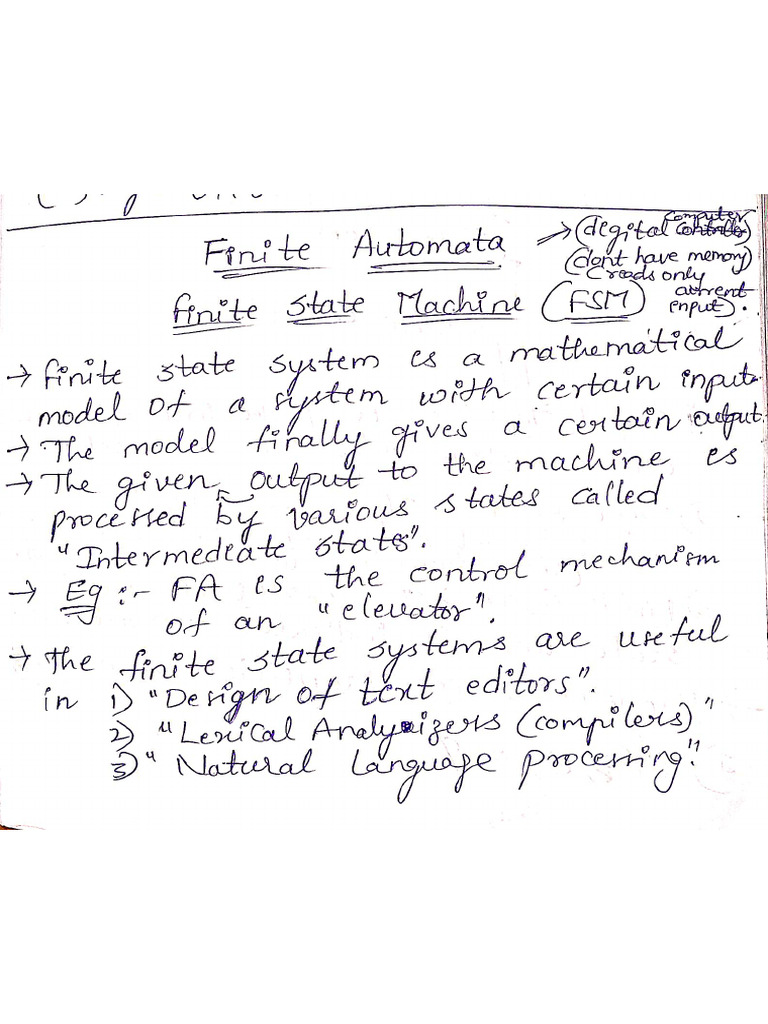 Finite Automata → (degital computer)
(dont have memory)
(reads only
current
input).
finite state Machine (FSM)
→ finite state system is a mathematical
model of a system with certain input.
→ The model finally gives a certain output.
→ The given output to the machine is
processed by various states called
"Intermediate states".
→ Eg :- FA is the control mechanism
of an "elevator".
→ The finite state systems are useful
in 1) "Design of text editors".
2) "Lexical Analyizers (compilers)"
3) "Natural Language processing".